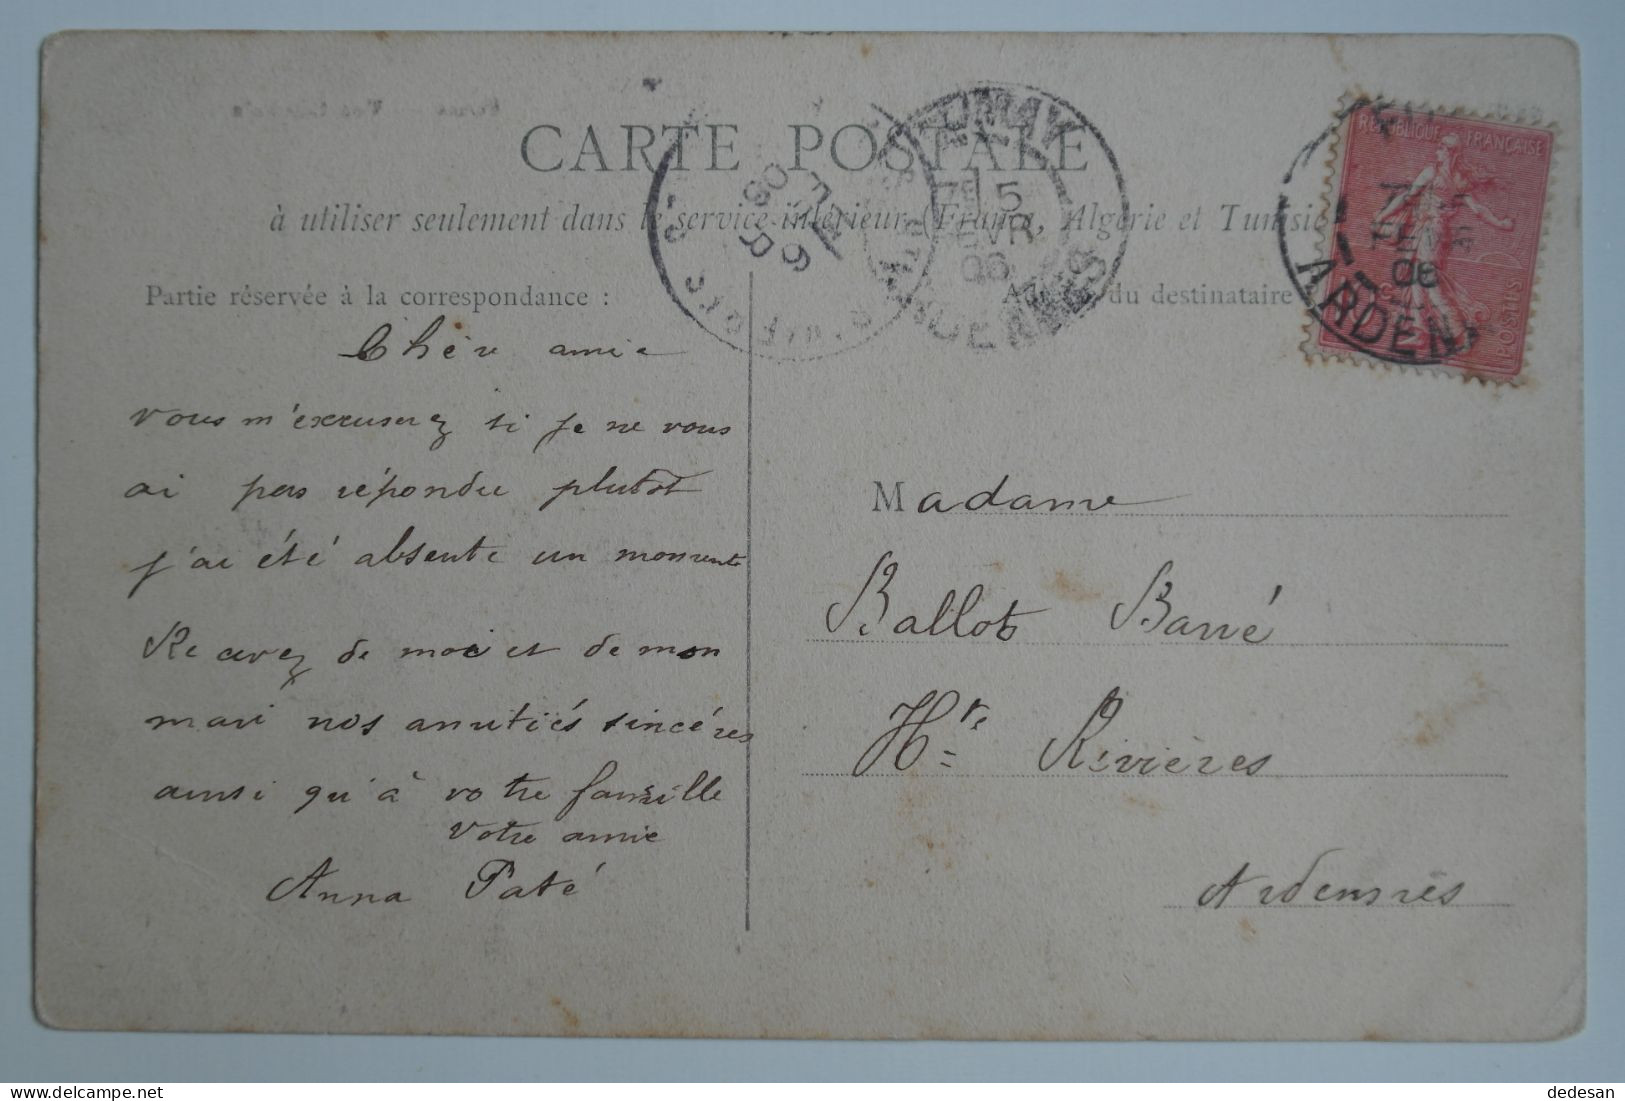 CARTE POSTALE
à utiliser seulement dans le service intérieur (France, Algérie et Tunisie
Partie réservée à la correspondance :
Chère amie
vous m'excuserez si je ne vous
ai pas répondu plutot
j'ai été absente un moment
Recevez de moi et de mon
mari nos amitiés sincères
ainsi qu'à votre famille
Votre amie
Anna Paté
du destinataire
REPUBLIQUE FRANÇAISE
POSTES
ARDEN
06
FUMAY
7E 5
EVR
06
ARDENNES
Madame
Ballot Barré
Htes Rivières
Ardennes
dedesan